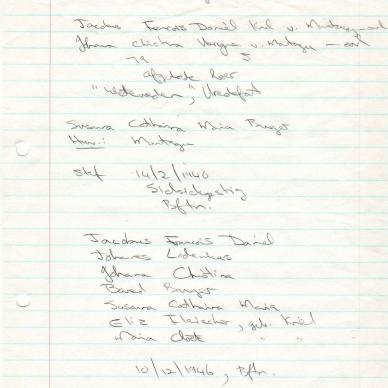 Jacobus Francois Daniel Kriel v. Montagu-oord
Johana Christina v. Montagu - oord
79 5
Afgetrede Boer
" ", Vredefort
Susanna Catharina Maria Burger
Huw.: Montagu
Sterf 14/2/1946
Bftn.
Jacobus Francois Daniel
Johannes Lodewicus
Johana Christina
Barend Burger
Susanna Catharina Maria
Eliz Fleischer, geb. Kriel
Maria Cloete " "
10/12/1946, Bftn.